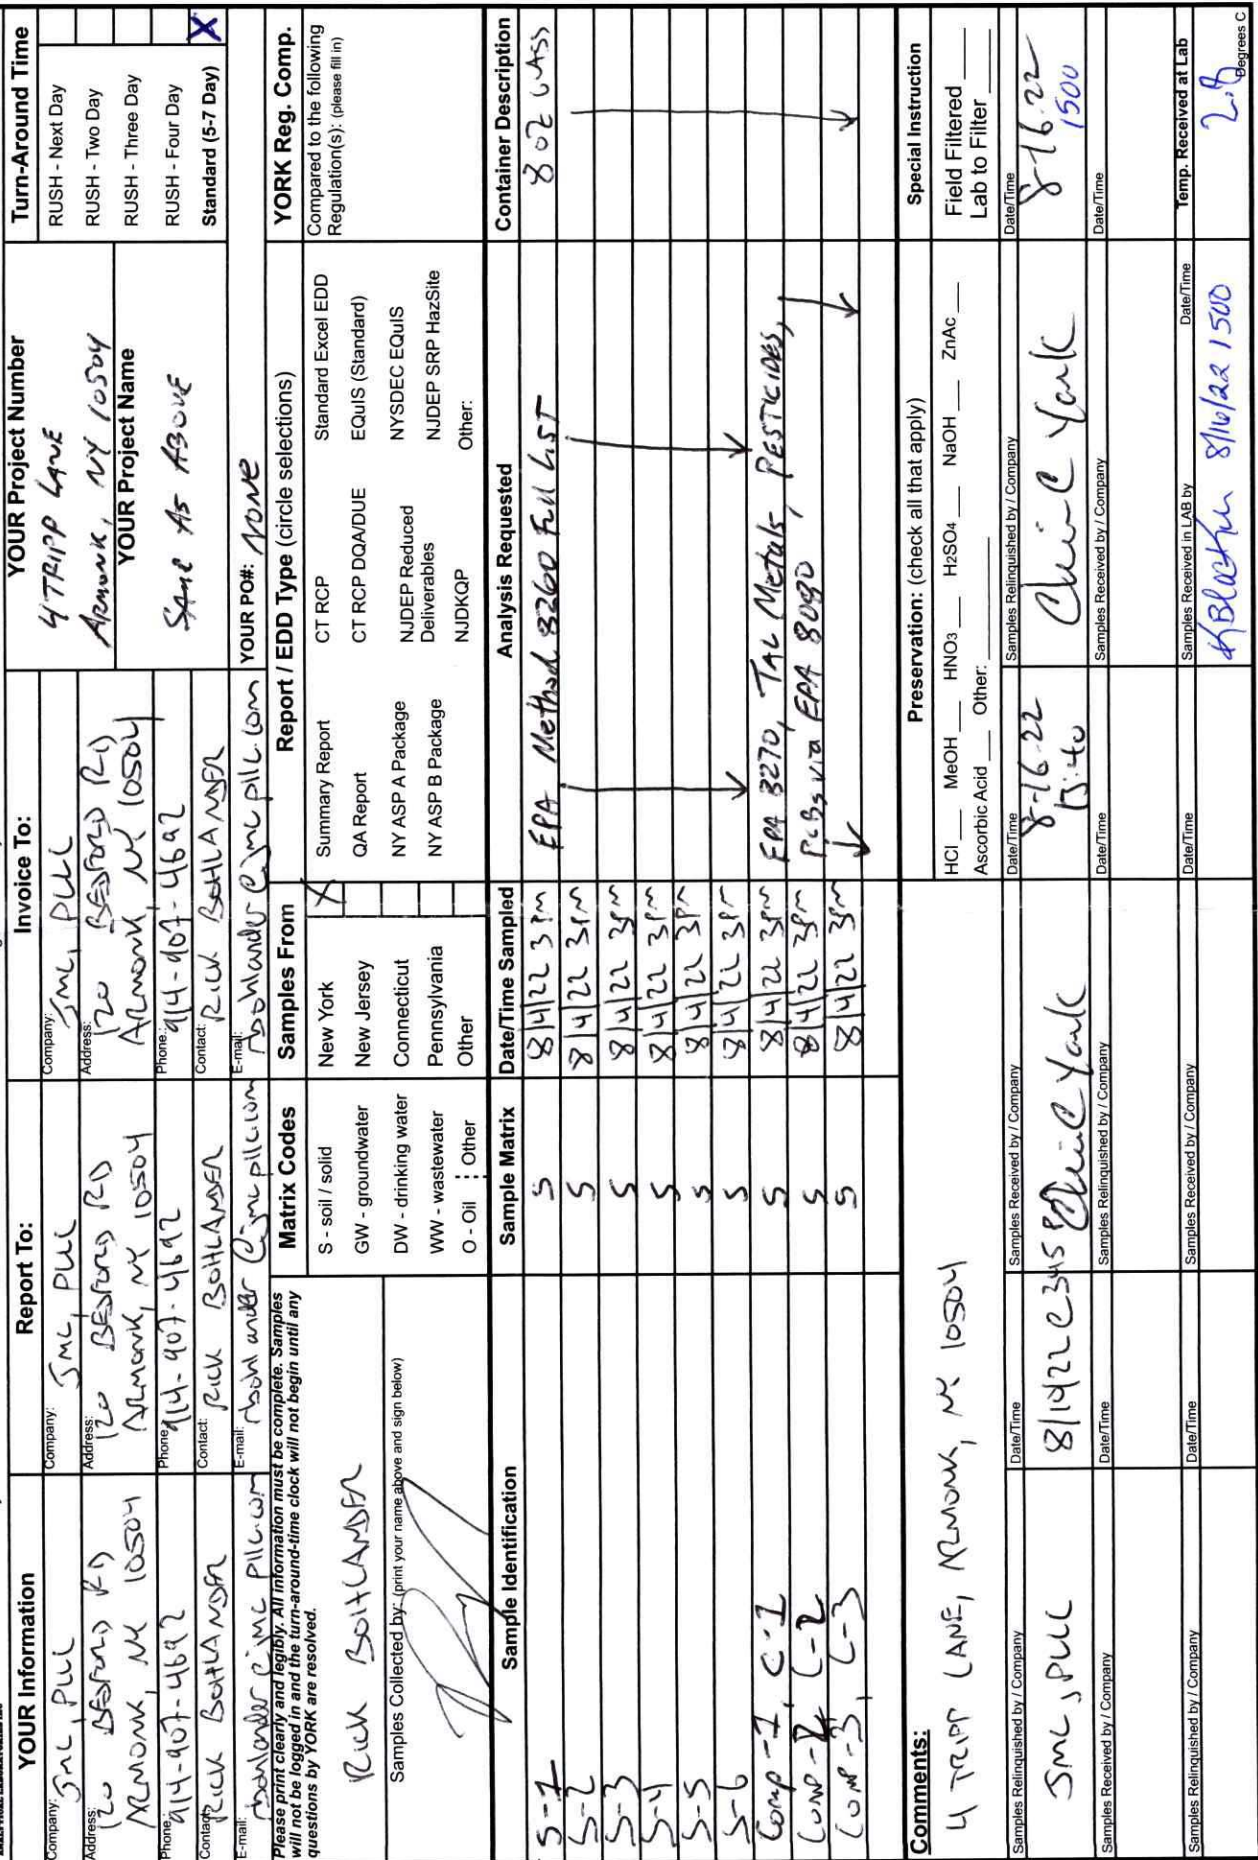 YOUR Information
Company: JMC, PLLC
Address: 120 BEDFORD RD
ARMONK, NY 10504
Phone: 914-907-4692
Contact: RICK BOHLANDER
E-mail: rbohlander@jmcpllc.com
Report To:
Company: JMC, PLLC
Address: 120 BEDFORD RD
ARMONK, NY 10504
Phone: 914-907-4692
Contact: RICK BOHLANDER
E-mail: rbohlander@jmcpllc.com
Invoice To:
Company: JMC, PLLC
Address: 120 BEDFORD RD
ARMONK, NY 10504
Phone: 914-907-4692
Contact: RICK BOHLANDER
E-mail: rbohlander@jmcpllc.com
YOUR Project Number
4 TRIPP LANE
ARMONK, NY 10504
YOUR Project Name
SAME AS ABOVE
YOUR PO#: NONE
Turn-Around Time
RUSH - Next Day
RUSH - Two Day
RUSH - Three Day
RUSH - Four Day
Standard (5-7 Day) X
Please print clearly and legibly. All information must be complete. Samples
will not be logged in and the turn-around-time clock will not begin until any
questions by YORK are resolved.
RICK BOHLANDER
Samples Collected by: (print your name above and sign below)
Matrix Codes
S - soil / solid
GW - groundwater
DW - drinking water
WW - wastewater
O - Oil Other
Samples From
New York X
New Jersey
Connecticut
Pennsylvania
Other
Report / EDD Type (circle selections)
Summary Report CT RCP Standard Excel EDD
QA Report CT RCP DQA/DUE EQuIS (Standard)
NY ASP A Package NJDEP Reduced Deliverables NYSDEC EQuIS
NY ASP B Package NJDKQP NJDEP SRP HazSite
Other:
YORK Reg. Comp.
Compared to the following
Regulation(s): (please fill in)
Sample Identification Sample Matrix Date/Time Sampled Analysis Requested Container Description
S-1 S 8/4/22 3pm EPA Method 8260 Full LIST 8 oz GLASS
S-2 S 8/4/22 3pm
S-3 S 8/4/22 3pm
S-4 S 8/4/22 3pm
S-5 S 8/4/22 3pm
S-6 S 8/4/22 3pm
Comp-1, C-1 S 8/4/22 3pm EPA 8270, TAL Metals, PESTICIDES,
COMP-2, C-2 S 8/4/22 3pm PCBs via EPA 8080
COMP-3, C-3 S 8/4/22 3pm
Comments:
4 TRIPP LANE, ARMONK, NY 10504
Preservation: (check all that apply)
HCl MeOH HNO3 H2SO4 NaOH ZnAc
Ascorbic Acid Other:
Special Instruction
Field Filtered
Lab to Filter
Samples Relinquished by / Company
JMC, PLLC
Date/Time
8/14/22 @ 345
Samples Received by / Company
York
Date/Time
8-16-22
13:40
Samples Relinquished by / Company
York
Date/Time
8-16-22
1500
Samples Received by / Company
Date/Time
Samples Relinquished by / Company
Date/Time
Samples Received by / Company
Date/Time
Samples Relinquished by / Company
Date/Time
Samples Received by / Company
Date/Time
Samples Received in LAB by
8/16/22 1500
Date/Time
Temp. Received at Lab
Degrees C